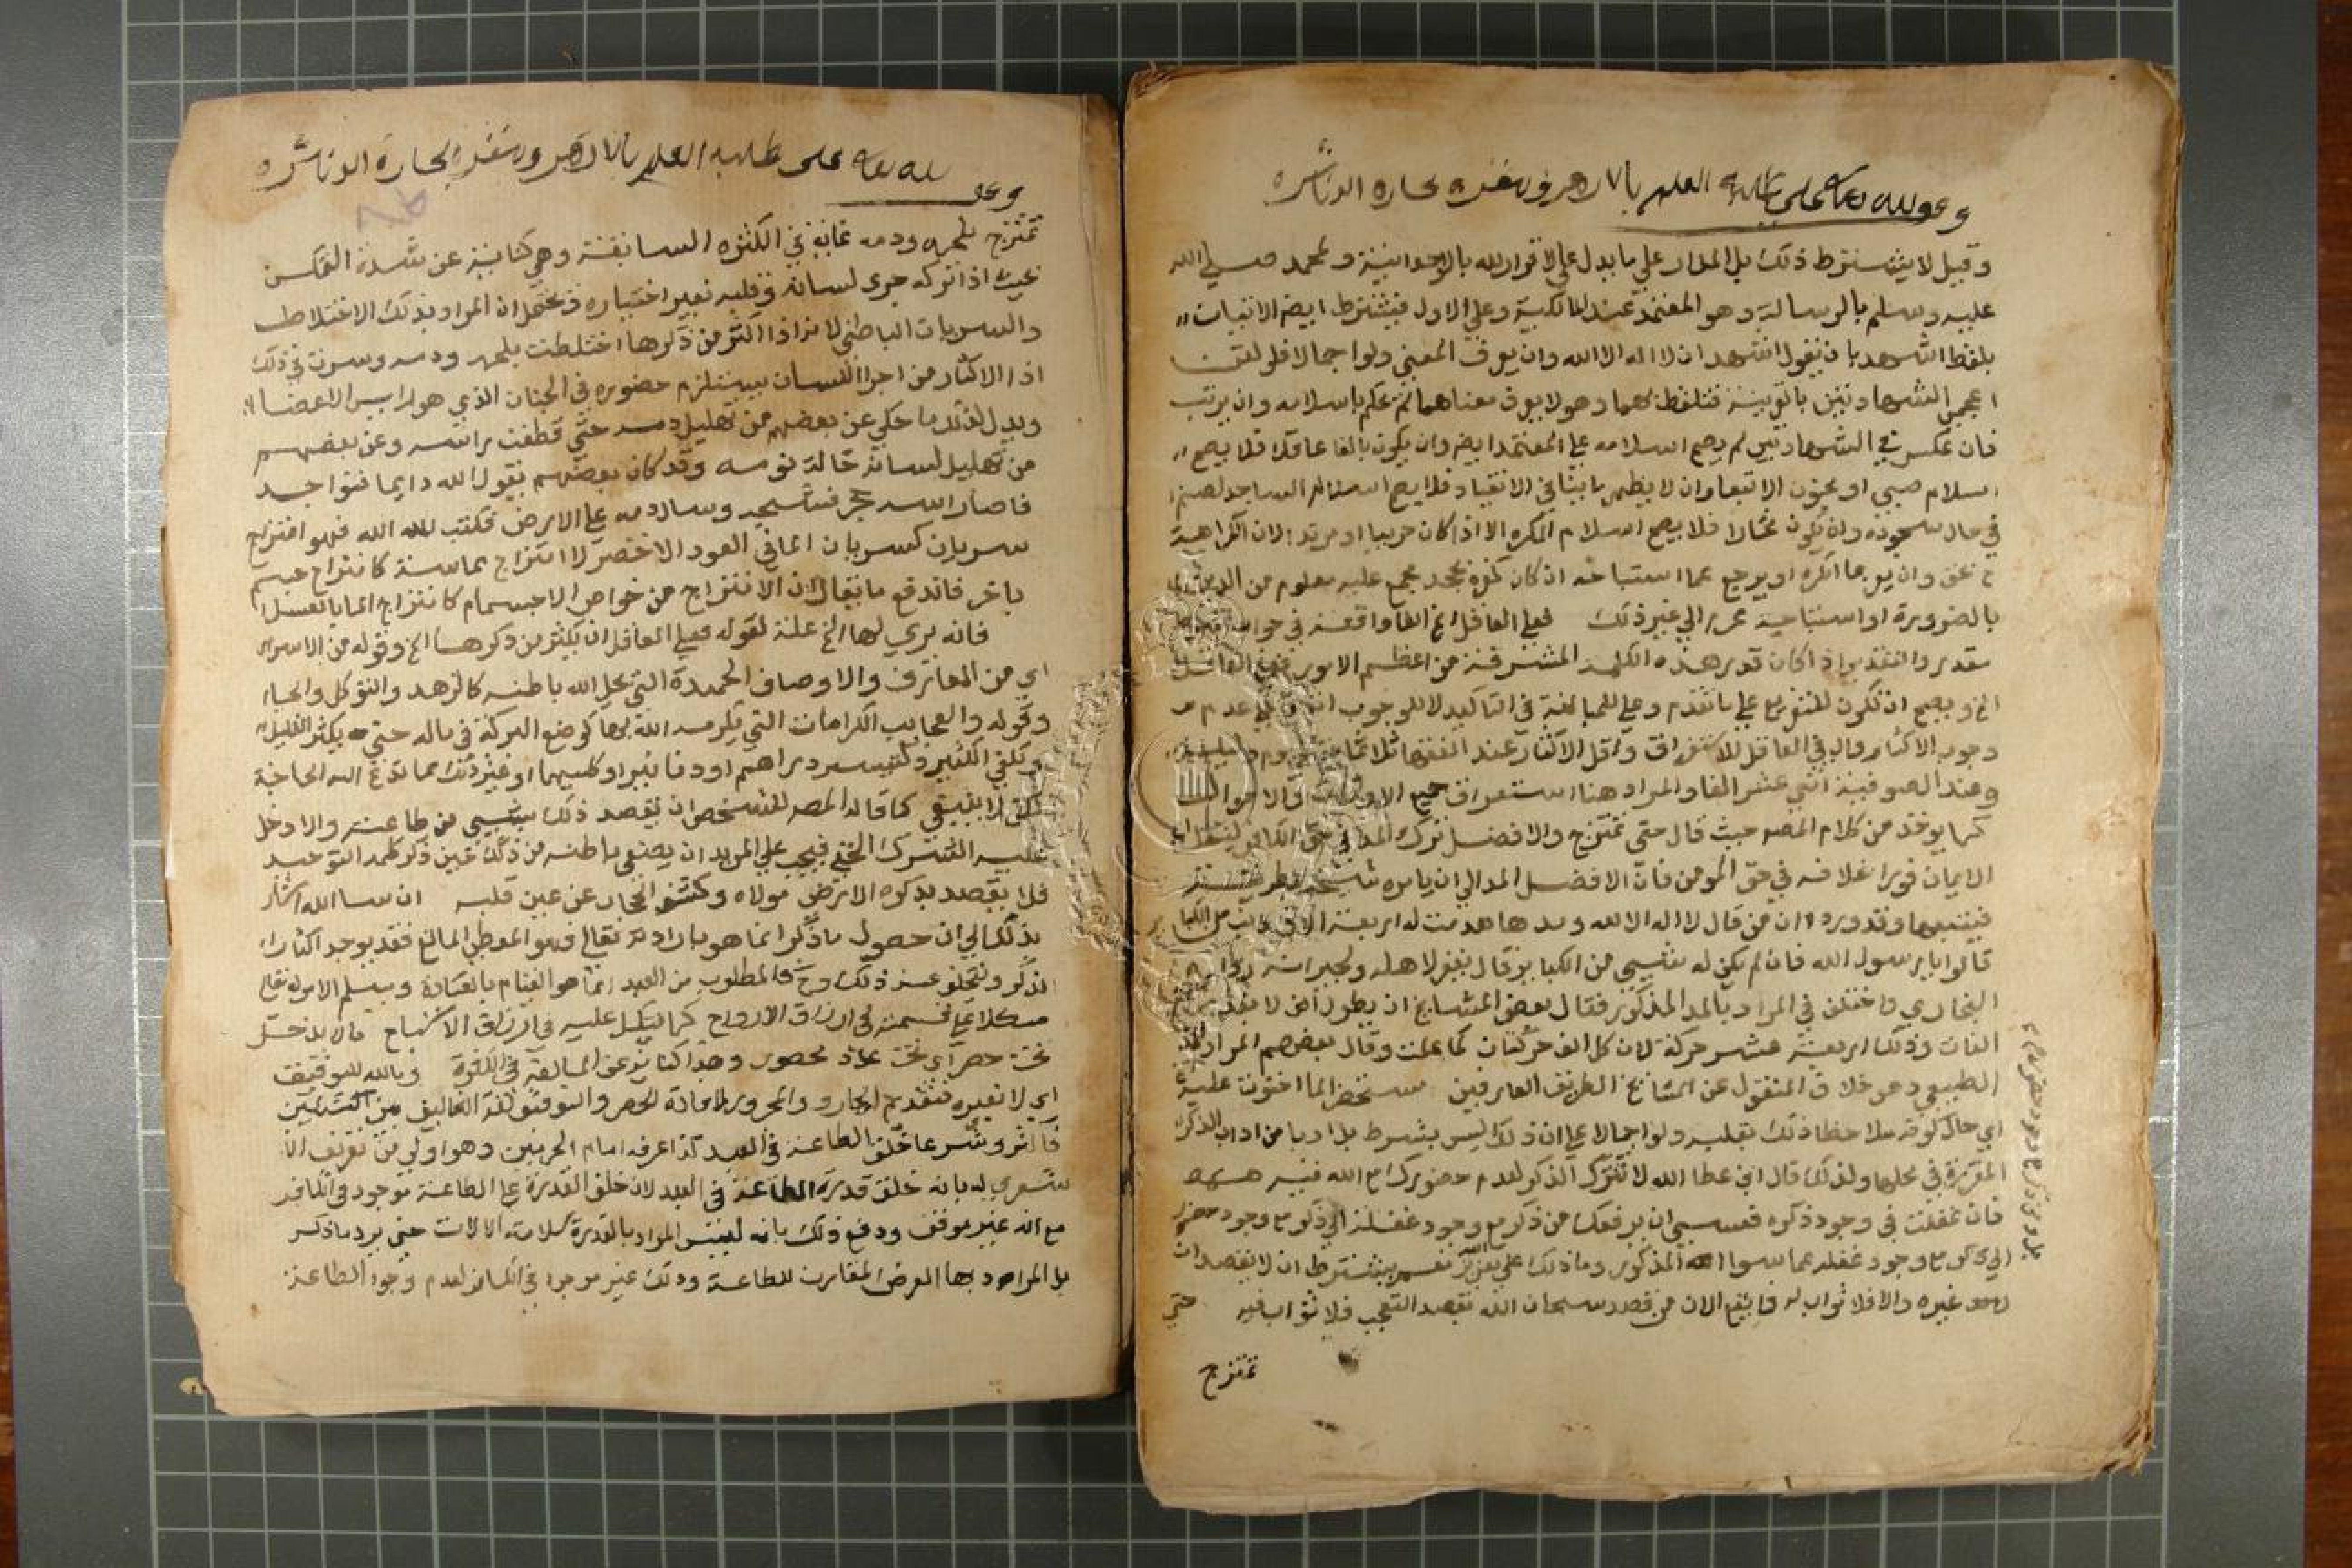 وقف لله تعالى على طلبة العلم بالازهر ومقره بحارة
وقيل لا يشترط ذلك بل المدار علي ما يدل علي الاقرار لله بالوحدانية ولمحمد صلي الله
عليه وسلم بالرسالة وهو المعتمد عند المالكية وعلي الاول فيشترط ايضا الاتيان
بلفظ اشهد بان يقول اشهد ان لا اله الا الله وان يعرف المعني ولو اجمالا فلو لقن
اعجمي الشهادتين بالعربية فتلفظ بهما وهو لا يعرف معناهما لم يحكم باسلامه وان يرتب
فان عكس في الشهادتين لم يصح اسلامه علي المعتمد ايضا وان يكون بالغا عاقلا فلا يصح
اسلام صبي او مجنون الا تبعا وان لا يظهر ما ينافي الانقياد فلا يصح اسلام الساجد لصنم
في حال سجوده وان يكون مختارا فلا يصح اسلام المكره الا اذا كان حربيا او مرتدا لان اكراهه
ح بحق وان يقر بما انكره او يرجع عما استباحه ان كان كفره بجحد مجمع عليه معلوم من الدين
بالضرورة او استباحة محرم الي غير ذلك فعلي العاقل الخ الفا واقعة في جواب شرط
مقدر والتقدير اذا كان قدر هذه الكلمة المشرفة من اعظم الامور فعلي العاقل
الخ ويصح ان تكون للتفريع علي ما تقدم وعلي للمبالغة في التاكيد لا للوجوب عدم
وجوب الاكثار وال في العاقل للاستغراق واقل الاكثار عند الفقها ثلاثمائة كل يوم وليلة
وعند الصوفية اثني عشر الفا والمراد هنا استغراق جميع الاوقات والاحوال
كما يوخذ من كلام المصه حيث قال حتى تمتزج والافضل ترك المد في حق الكافر لينتقل الي
الايمان فورا بخلافه في حق المومن فان الافضل المد الا ان يامره شيخه بطريقة
فيتبعها وقد ورد ان من قال لا اله الا الله ومدها هدمت له اربعة الاف ذنب من الكبائر
قالوا يا رسول الله فان لم يكن له شيي من الكبائر قال يغفر لاهله ولجيرانه رواه
البخاري واختلف في المراد بالمد المذكور فقال بعض المشايخ ان يطول الف لا بقدر
الفات وذلك اربعة عشر حركة لان كل الف حركتان كما علمت وقال بعضهم المراد المد
الطبيعي وهو خلاف المنقول عن المشايخ الطريق العارفين مستحضرا لما احتوت عليه
اي حال كونه ملاحظا ذلك بقلبه ولو اجمالا علي ان ذلك ليس بشرط بل ادبا من اداب الذكر
المقررة في محلها ولذلك قال ابن عطا الله لا تترك الذكر لعدم حضورك مع الله فيه
فان غفلت في وجود ذكره فعسي ان يرفعك من ذكر مع وجود غفلة الي ذكر مع وجود حضور
الي ذكر مع وجود غفله عما سوا المذكور وما ذلك علي الله بعزيز نعم يشترط ان لا يقصد ان
غيره والا فلا ثواب له فما يقع الان من قصد سبحان الله بقصد التعجب فلا ثواب فيه حتي
تمتزج
وقف لله تعالى على طلبة العلم بالازهر ومقره بحارة
تمتزج بلحمه ودمه غاية في الكثرة السابقة وهي كناية عن شدة التمكن
بحيث اذا تركه جرى لسانه وقلبه بغير اختياره ويحتمل ان المراد بذلك الاختلاط
والسريان الباطني لانه اذا اكثر من ذكرها اختلطت بلحمه ودمه وسرت في ذلك
اذا الاكثار من اجرا اللسان يستلزم حضوره في الجنان الذي هو راس الاعضا
ويدل لذلك ما حكي عن بعضهم من تهليل دمه حتي قطعت راسه وعن بعضهم
من تهليل لسانه حالة نومه وقد كان بعضهم يقول الله دايما فتواجد
فاصاب راسه حجر فشجه وسال دمه علي الارض فكتب الله الله فهو امتزاج
سريان كسريان الما في العود الاخضر لا امتزاج مماسة كامتزاج جسم
باخر فاندفع ما يقال ان الامتزاج من خواص الاجسام كامتزاج الما بالعسل
فانه يري لها الخ علة لقوله فعلي العاقل ان يكثر من ذكرها الخ وقوله من الاسرار
اي من المعارف والاوصاف الحميدة التي يحلي الله باطنه كالزهد والتوكل والحيا
وقوله والعجايب الكرامات التي يكرمه الله بها كوضع البركة في ماله حتي يكثر القليل
ويكفي الكثير وكتيسير دراهم او دنانير او كليهما او غير ذلك مما تدعو اليه الحاجة
لكن لا ينبغي كما قاله المصه للشخص ان يقصد ذلك بشيي من طاعته والا دخل
عليه الشرك الخفي فيجب علي المريد ان يصفي باطنه من ذلك حين ذكر كلمة التوحيد
فلا يقصد بذكره الا رضي مولاه وكشف الحجاب عن عين قلبه ان شا الله اشار
بذلك الي ان حصول ما ذكر انما هو بارادته تعالي فهو المعطي المانع فقد يوجد اكثار
الذكر ويتخلف عنه ذلك وح فالمطلوب من العبد انما هو القيام بالعبادة ويسلم الامر له تعالي
متكلا علي قسمته في ارزاق الارواح كما يتكل عليه في ارزاق الاشباح ما لا يدخل
تحت حصر اي تحت عدد محصور وهذا كناية عن المبالغة في الكثرة وبالله التوفيق
اي لا بغيره فتقديم الجار والمجرور لافادة الحصر والتوفيق لغة التاليف بين الشيئين
فاكثر وشرعا خلق الطاعة في العبد كذا عرفه امام الحرمين وهو اولي من تعريف الا
شعري له بانه خلق قدرة الطاعة في العبد لان خلق القدرة علي الطاعة موجود في الكافر
مع انه غير موفق ودفع ذلك بانه ليس المراد بالقدرة سلامة الالات حتي يرد ما ذكر
بل المراد بها العرض المقارن للطاعة وذلك غير موجود في الكافر لعدم وجود الطاعة